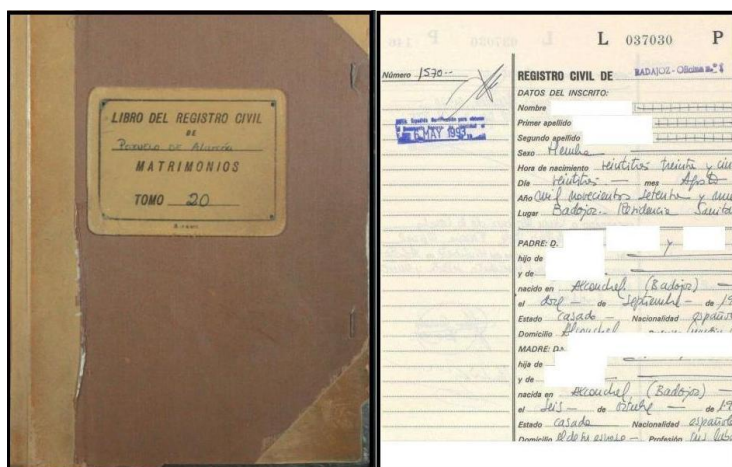 LIBRO DEL REGISTRO CIVIL
DE
Pozuelo de Alarcón
MATRIMONIOS
TOMO 20
L 037030 P
Número 1570.--
REGISTRO CIVIL DE BADAJOZ - Oficina n.º 1
DATOS DEL INSCRITO:
Nombre
Primer apellido
Segundo apellido
Sexo Hembra
Hora de nacimiento veintitres treinta y cin
Día veintitres.— mes Agosto
Año mil novecientos setenta y nue
Lugar Badajoz.- Residencia Sanita
MAY 1993
PADRE: D. y
hijo de
y de
nacido en Alconchel (Badajoz) —
el doce — de Septiembre — de 19
Estado casado — Nacionalidad española
Domicilio Alconchel
MADRE: D.ª
hija de
y de
nacida en Alconchel (Badajoz) —
el seis — de octubre — de 19
Estado casada Nacionalidad española
Domicilio el de su esposo — Profesión sus labo